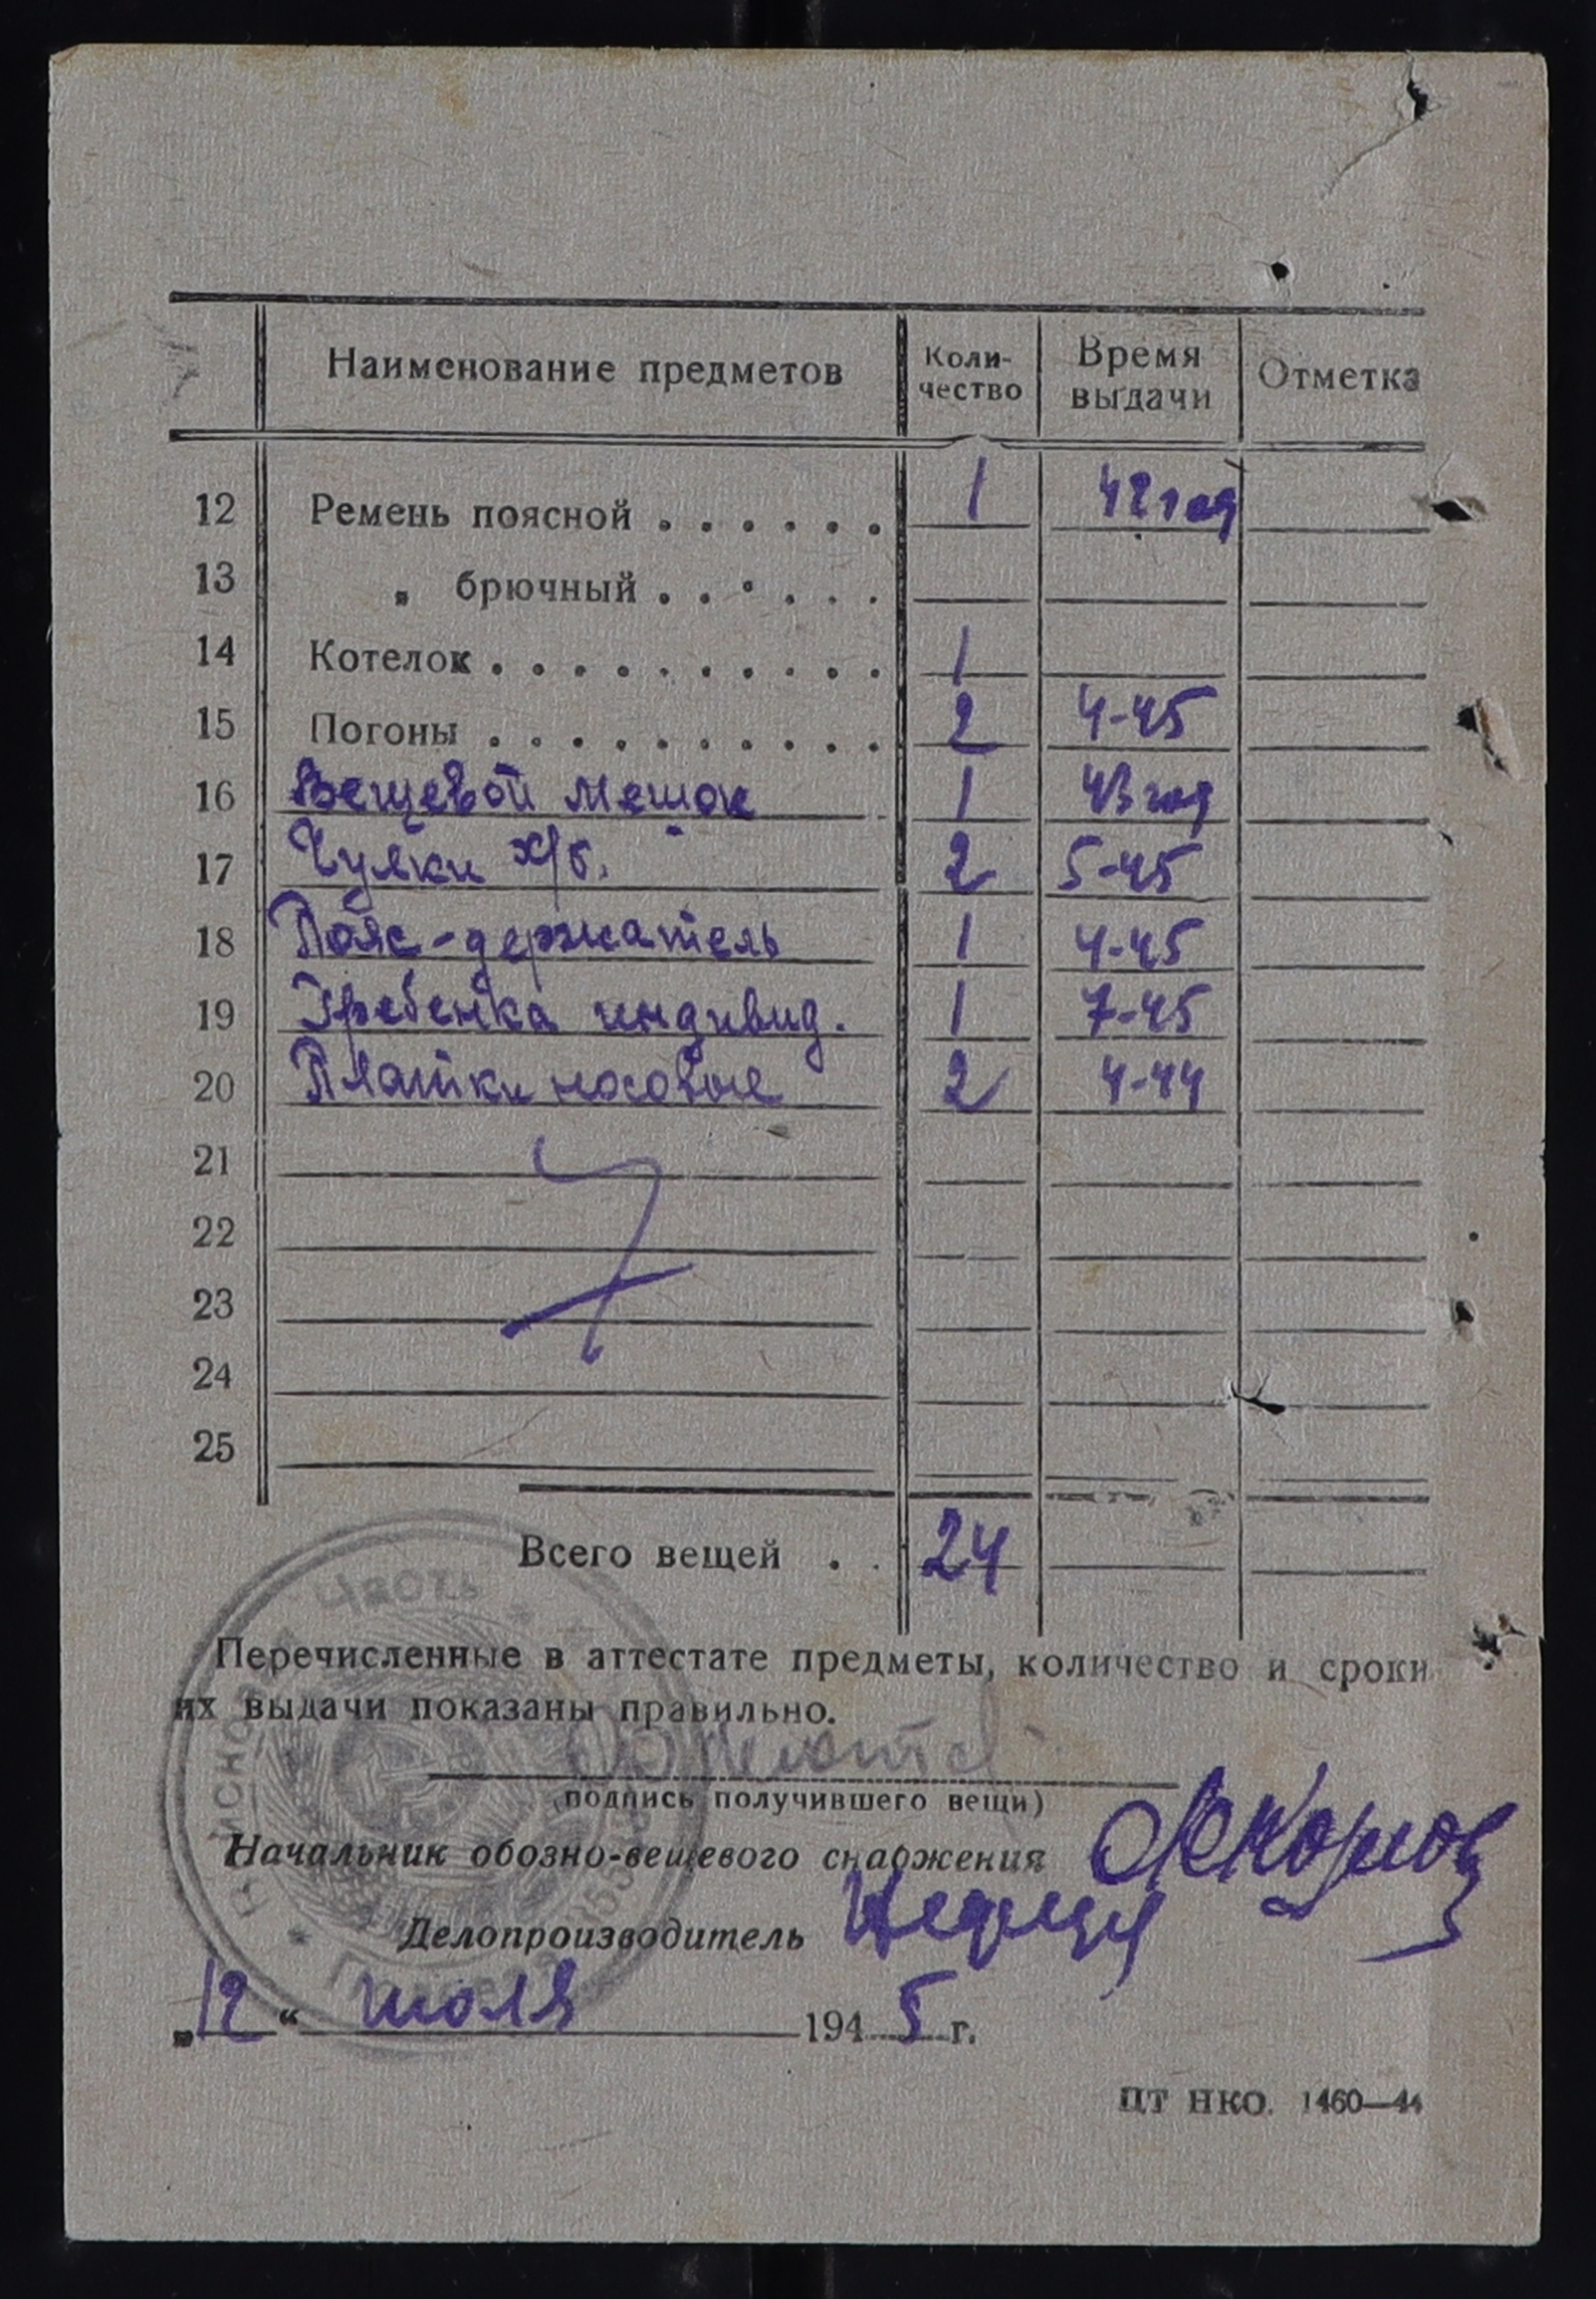 Наименование предметов Коли-чество Время выдачи Отметка
12 Ремень поясной . . . . . . 1 42 год
13 „ брючный . . . . . .
14 Котелок . . . . . . . . . . 1
15 Погоны . . . . . . . . . . 2 4-45
16 Вещевой мешок 1 43 год
17 Чулки х/б. 2 5-45
18 Пояс-держатель 1 4-45
19 Гребенка индивид. 1 7-45
20 Платки носовые 2 4-44
21
22
23
24
25
Всего вещей . . 24
Перечисленные в аттестате предметы, количество и сроки
их выдачи показаны правильно.
(подпись получившего вещи)
Начальник обозно-вещевого снаряжения
Делопроизводитель
„12“ июля 1945 г.
ЦТ НКО. 1460—44
часть